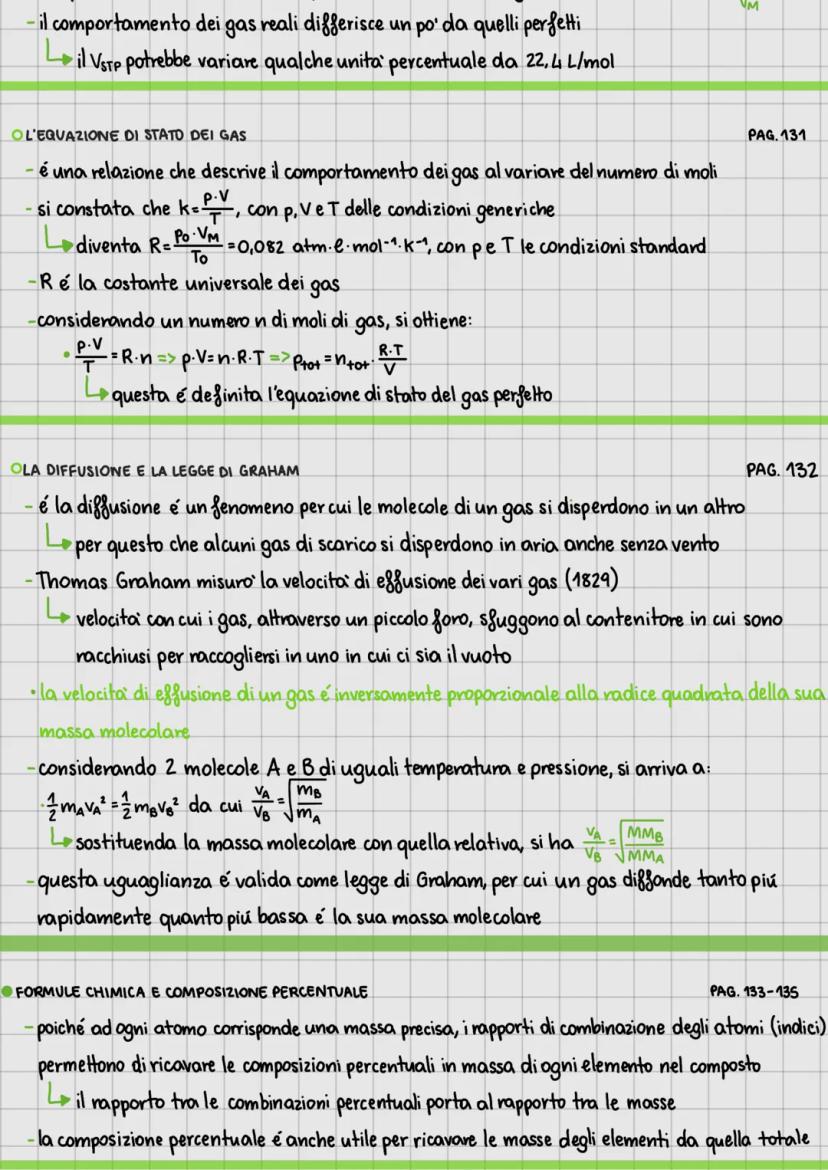 VM
- il comportamento dei gas reali differisce un po' da quelli perfetti
↳ il VSTP potrebbe variare qualche unita' percentuale da 22,4 L/mol
○ L'EQUAZIONE DI STATO DEI GAS PAG.131
- é una relazione che descrive il comportamento dei gas al variare del numero di moli
- si constata che k=p·V/T, con p, V e T delle condizioni generiche
↳ diventa R=Po·VM/To=0,082 atm·ℓ·mol⁻¹·K⁻¹, con p e T le condizioni standard
- R é la costante universale dei gas
- considerando un numero n di moli di gas, si ottiene:
• p·V/T=R·n => p·V=n·R·T => ptot=ntot·R·T/V
↳ questa é definita l'equazione di stato del gas perfetto
○ LA DIFFUSIONE E LA LEGGE DI GRAHAM PAG. 132
- é la diffusione é un fenomeno per cui le molecole di un gas si disperdono in un altro
↳ per questo che alcuni gas di scarico si disperdono in aria anche senza vento
- Thomas Graham misuro' la velocita' di effusione dei vari gas (1829)
↳ velocita' con cui i gas, attraverso un piccolo foro, sfuggono al contenitore in cui sono
racchiusi per raccogliersi in uno in cui ci sia il vuoto
• la velocita' di effusione di un gas é inversamente proporzionale alla radice quadrata della sua
massa molecolare
- considerando 2 molecole A e B di uguali temperatura e pressione, si arriva a:
· 1/2 mAvA²=1/2 mBvB² da cui vA/vB=√mB/mA
↳ sostituenda la massa molecolare con quella relativa, si ha vA/vB=√MMB/MMA
- questa uguaglianza é valida come legge di Graham, per cui un gas diffonde tanto piú
rapidamente quanto piú bassa é la sua massa molecolare
● FORMULE CHIMICA E COMPOSIZIONE PERCENTUALE PAG. 133-135
- poiché ad ogni atomo corrisponde una massa precisa, i rapporti di combinazione degli atomi (indici)
permettono di ricavare le composizioni percentuali in massa di ogni elemento nel composto
↳ il rapporto tra le combinazioni percentuali porta al rapporto tra le masse
- la composizione percentuale é anche utile per ricavare le masse degli elementi da quella totale